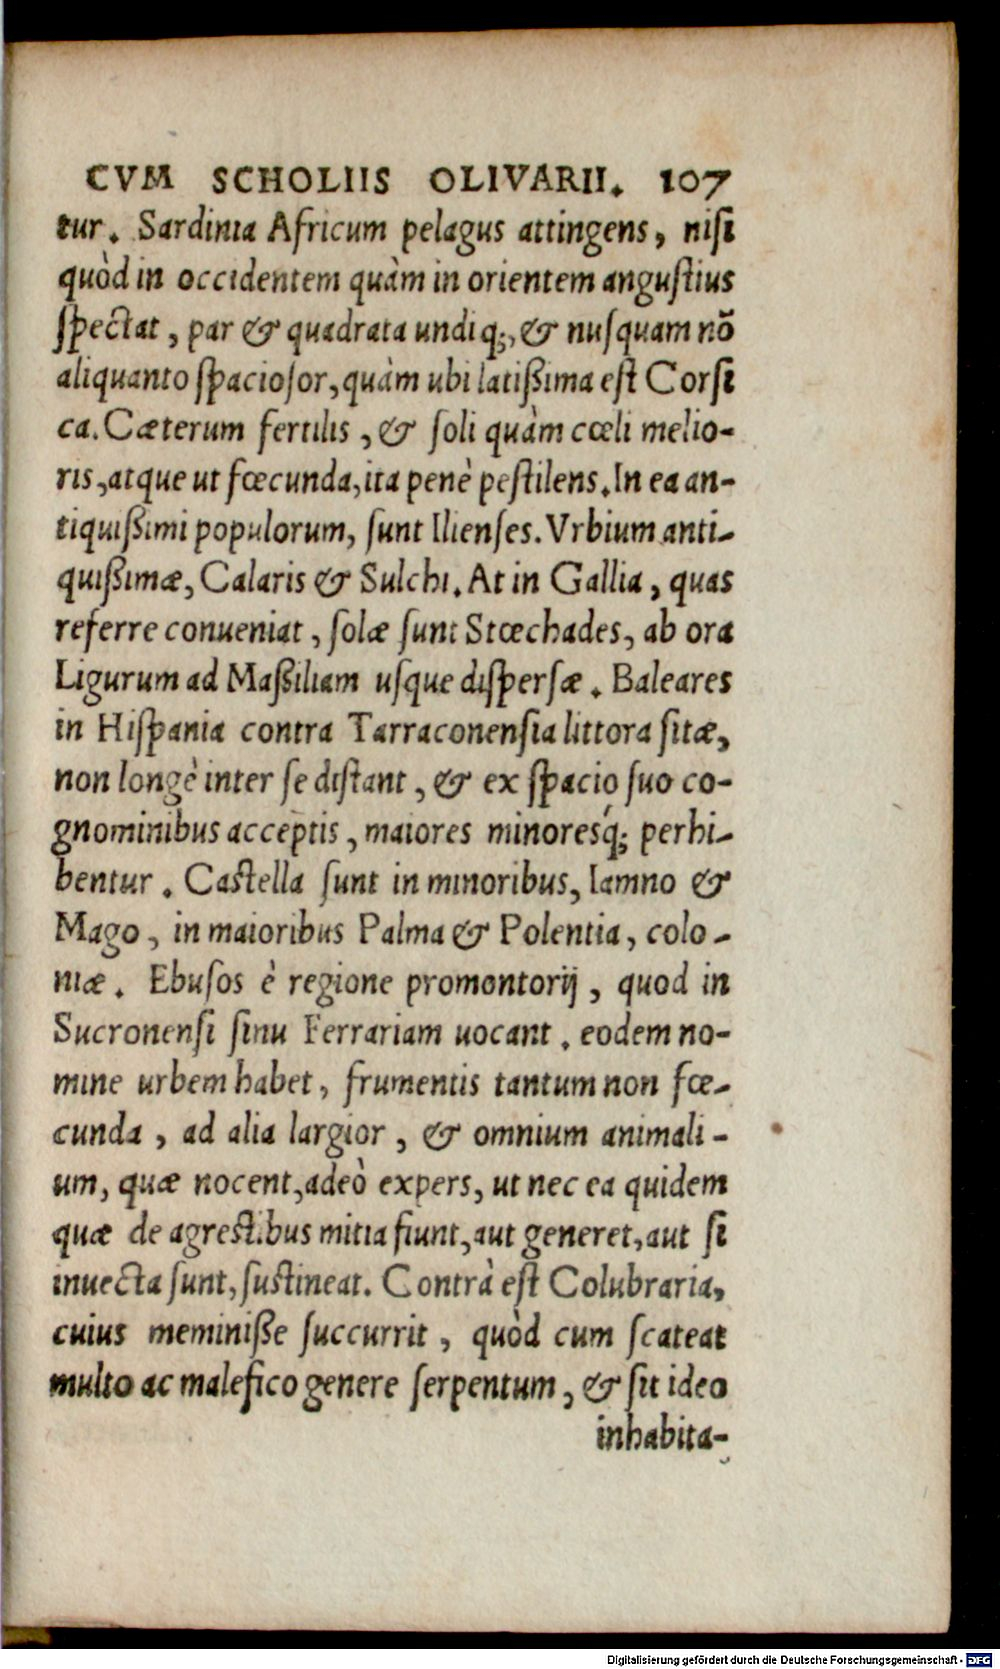 CVM SCHOLIIS OLIVARII. 107
tur. Sardinia Africum pelagus attingens, nisi
quòd in occidentem quàm in orientem angustius
spectat, par & quadrata undiq;, & nusquam nō
aliquanto spaciosor, quàm ubi latißima est Corsi
ca. Cæterum fertilis, & soli quàm cœli melio-
ris, atque ut fœcunda, ita penè pestilens. In ea an-
tiquißimi populorum, sunt Ilienses. Vrbium anti-
quißimæ, Calaris & Sulchi. At in Gallia, quas
referre conueniat, solæ sunt Stœchades, ab ora
Ligurum ad Maßiliam usque dispersæ. Baleares
in Hispania contra Tarraconensia littora sitæ,
non longè inter se distant, & ex spacio suo co-
gnominibus acceptis, maiores minoresq́; perhi-
bentur. Castella sunt in minoribus, Iamno &
Mago, in maioribus Palma & Polentia, colo-
niæ. Ebusos è regione promontorij, quod in
Sucronensi sinu Ferrariam uocant. eodem no-
mine urbem habet, frumentis tantum non fœ-
cunda, ad alia largior, & omnium animali-
um, quæ nocent, adeò expers, ut nec ea quidem
quæ de agrestibus mitia fiunt, aut generet, aut si
inuecta sunt, sustineat. Contrà est Colubraria,
cuius meminiße succurrit, quòd cum scateat
multo ac malefico genere serpentum, & sit ideo
inhabita-
Digitalisierung gefördert durch die Deutsche Forschungsgemeinschaft - DFG